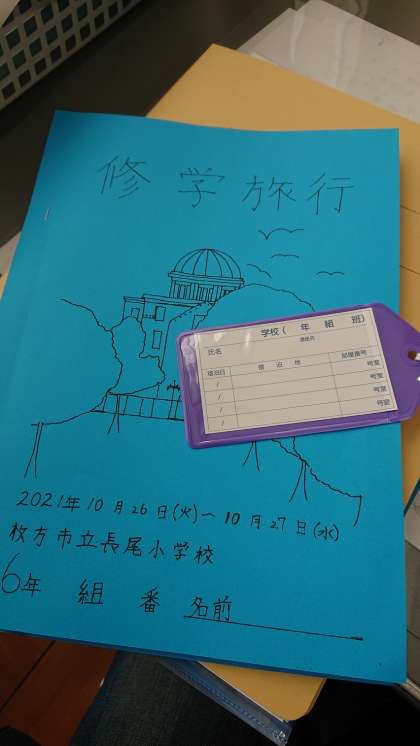 修学旅行
学校(　年　組　班)
連絡先
氏名
宿泊日　宿泊地　部屋番号
/　号室
/　号室
/　号室
/　号室
2021年10月26日(火)〜10月27日(水)
枚方市立長尾小学校
6年　組　番　名前